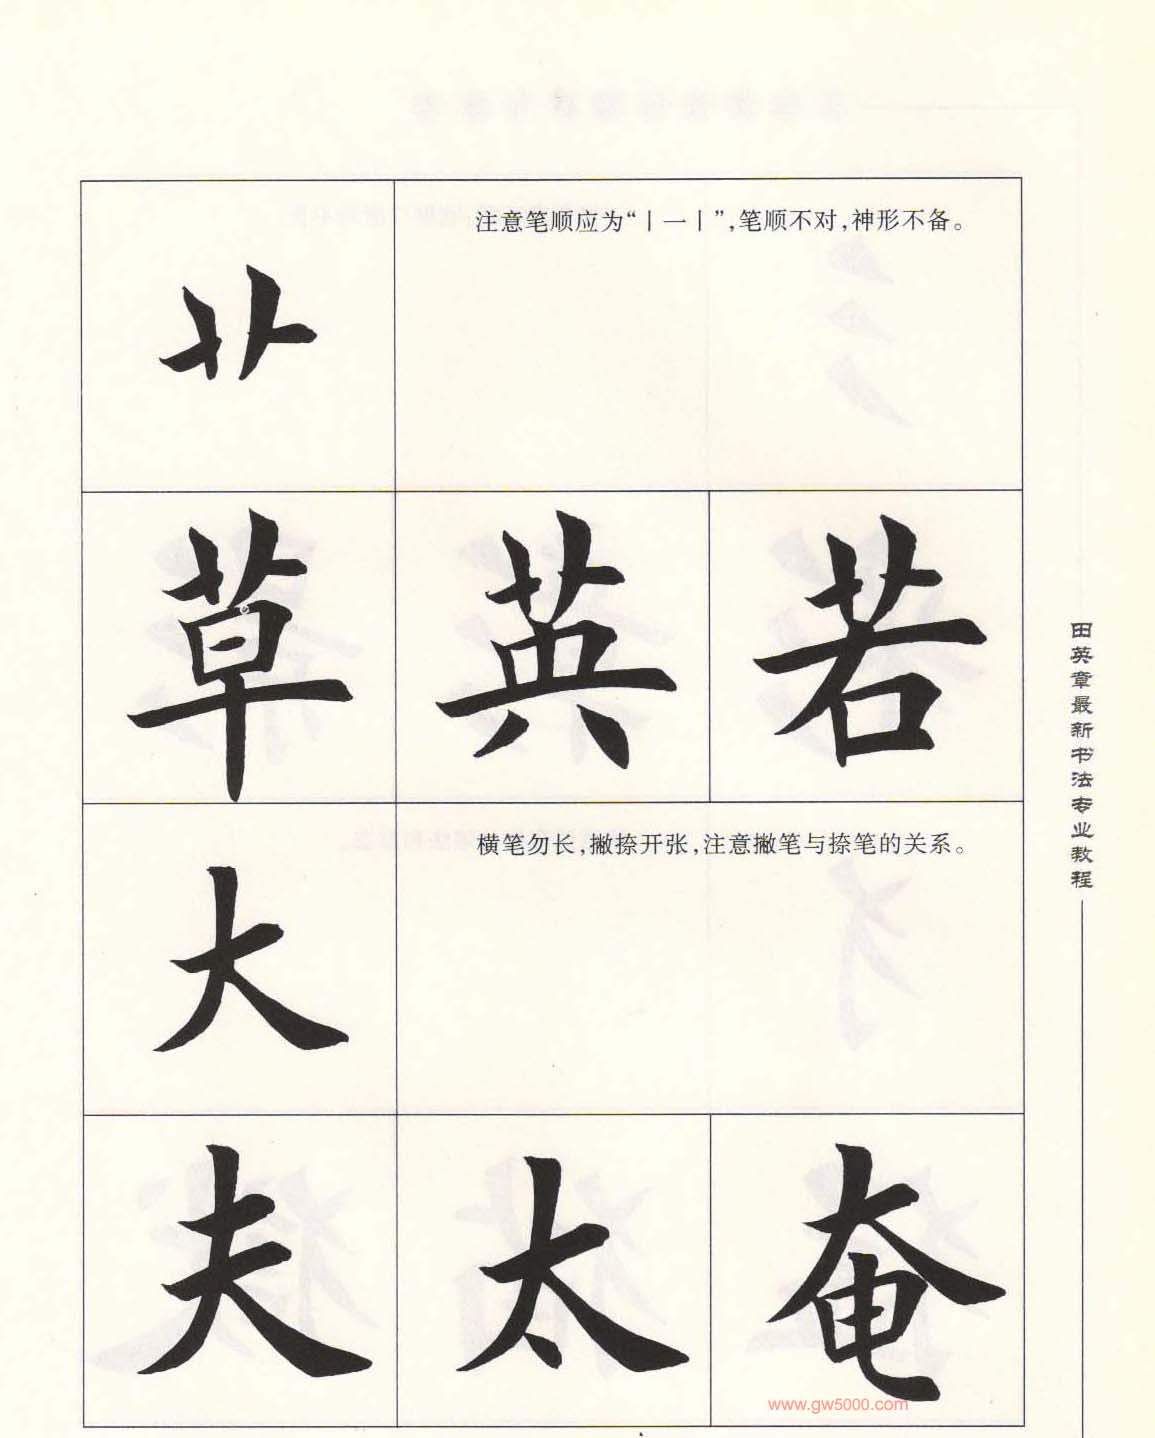 艹
注意笔顺应为“丨一丨”,笔顺不对,神形不备。
草 英 若
大
横笔勿长,撇捺开张,注意撇笔与捺笔的关系。
夫 太 奄
www.gw5000.com
田英章最新书法专业教程